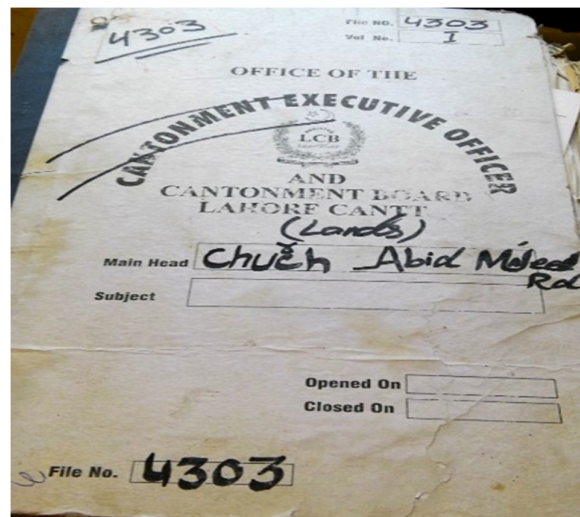 4303
File No. 4303
Vol No. I
OFFICE OF THE
CANTONMENT EXECUTIVE OFFICER
LCB
AND
CANTONMENT BOARD
LAHORE CANTT
(Lands)
Main Head Chuch Abid Majeed
Rd
Subject
Opened On
Closed On
File No. 4303